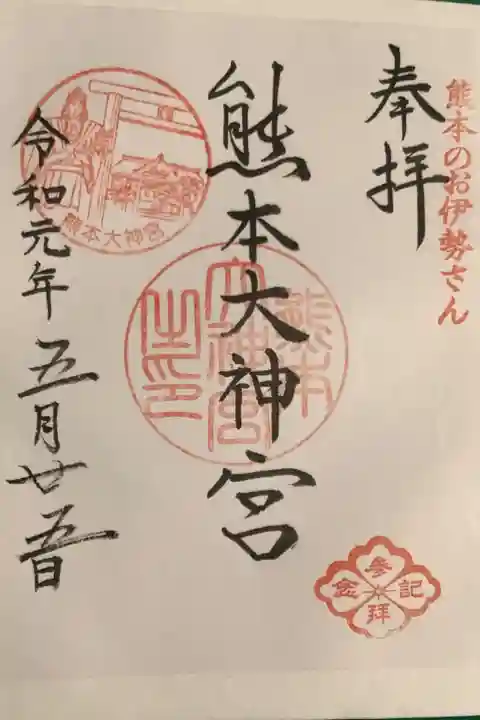 熊本のお伊勢さん
奉拝
熊本大神宮
熊本
大神宮
之印
熊本大神宮
令和元年五月廿五日
参拝記念